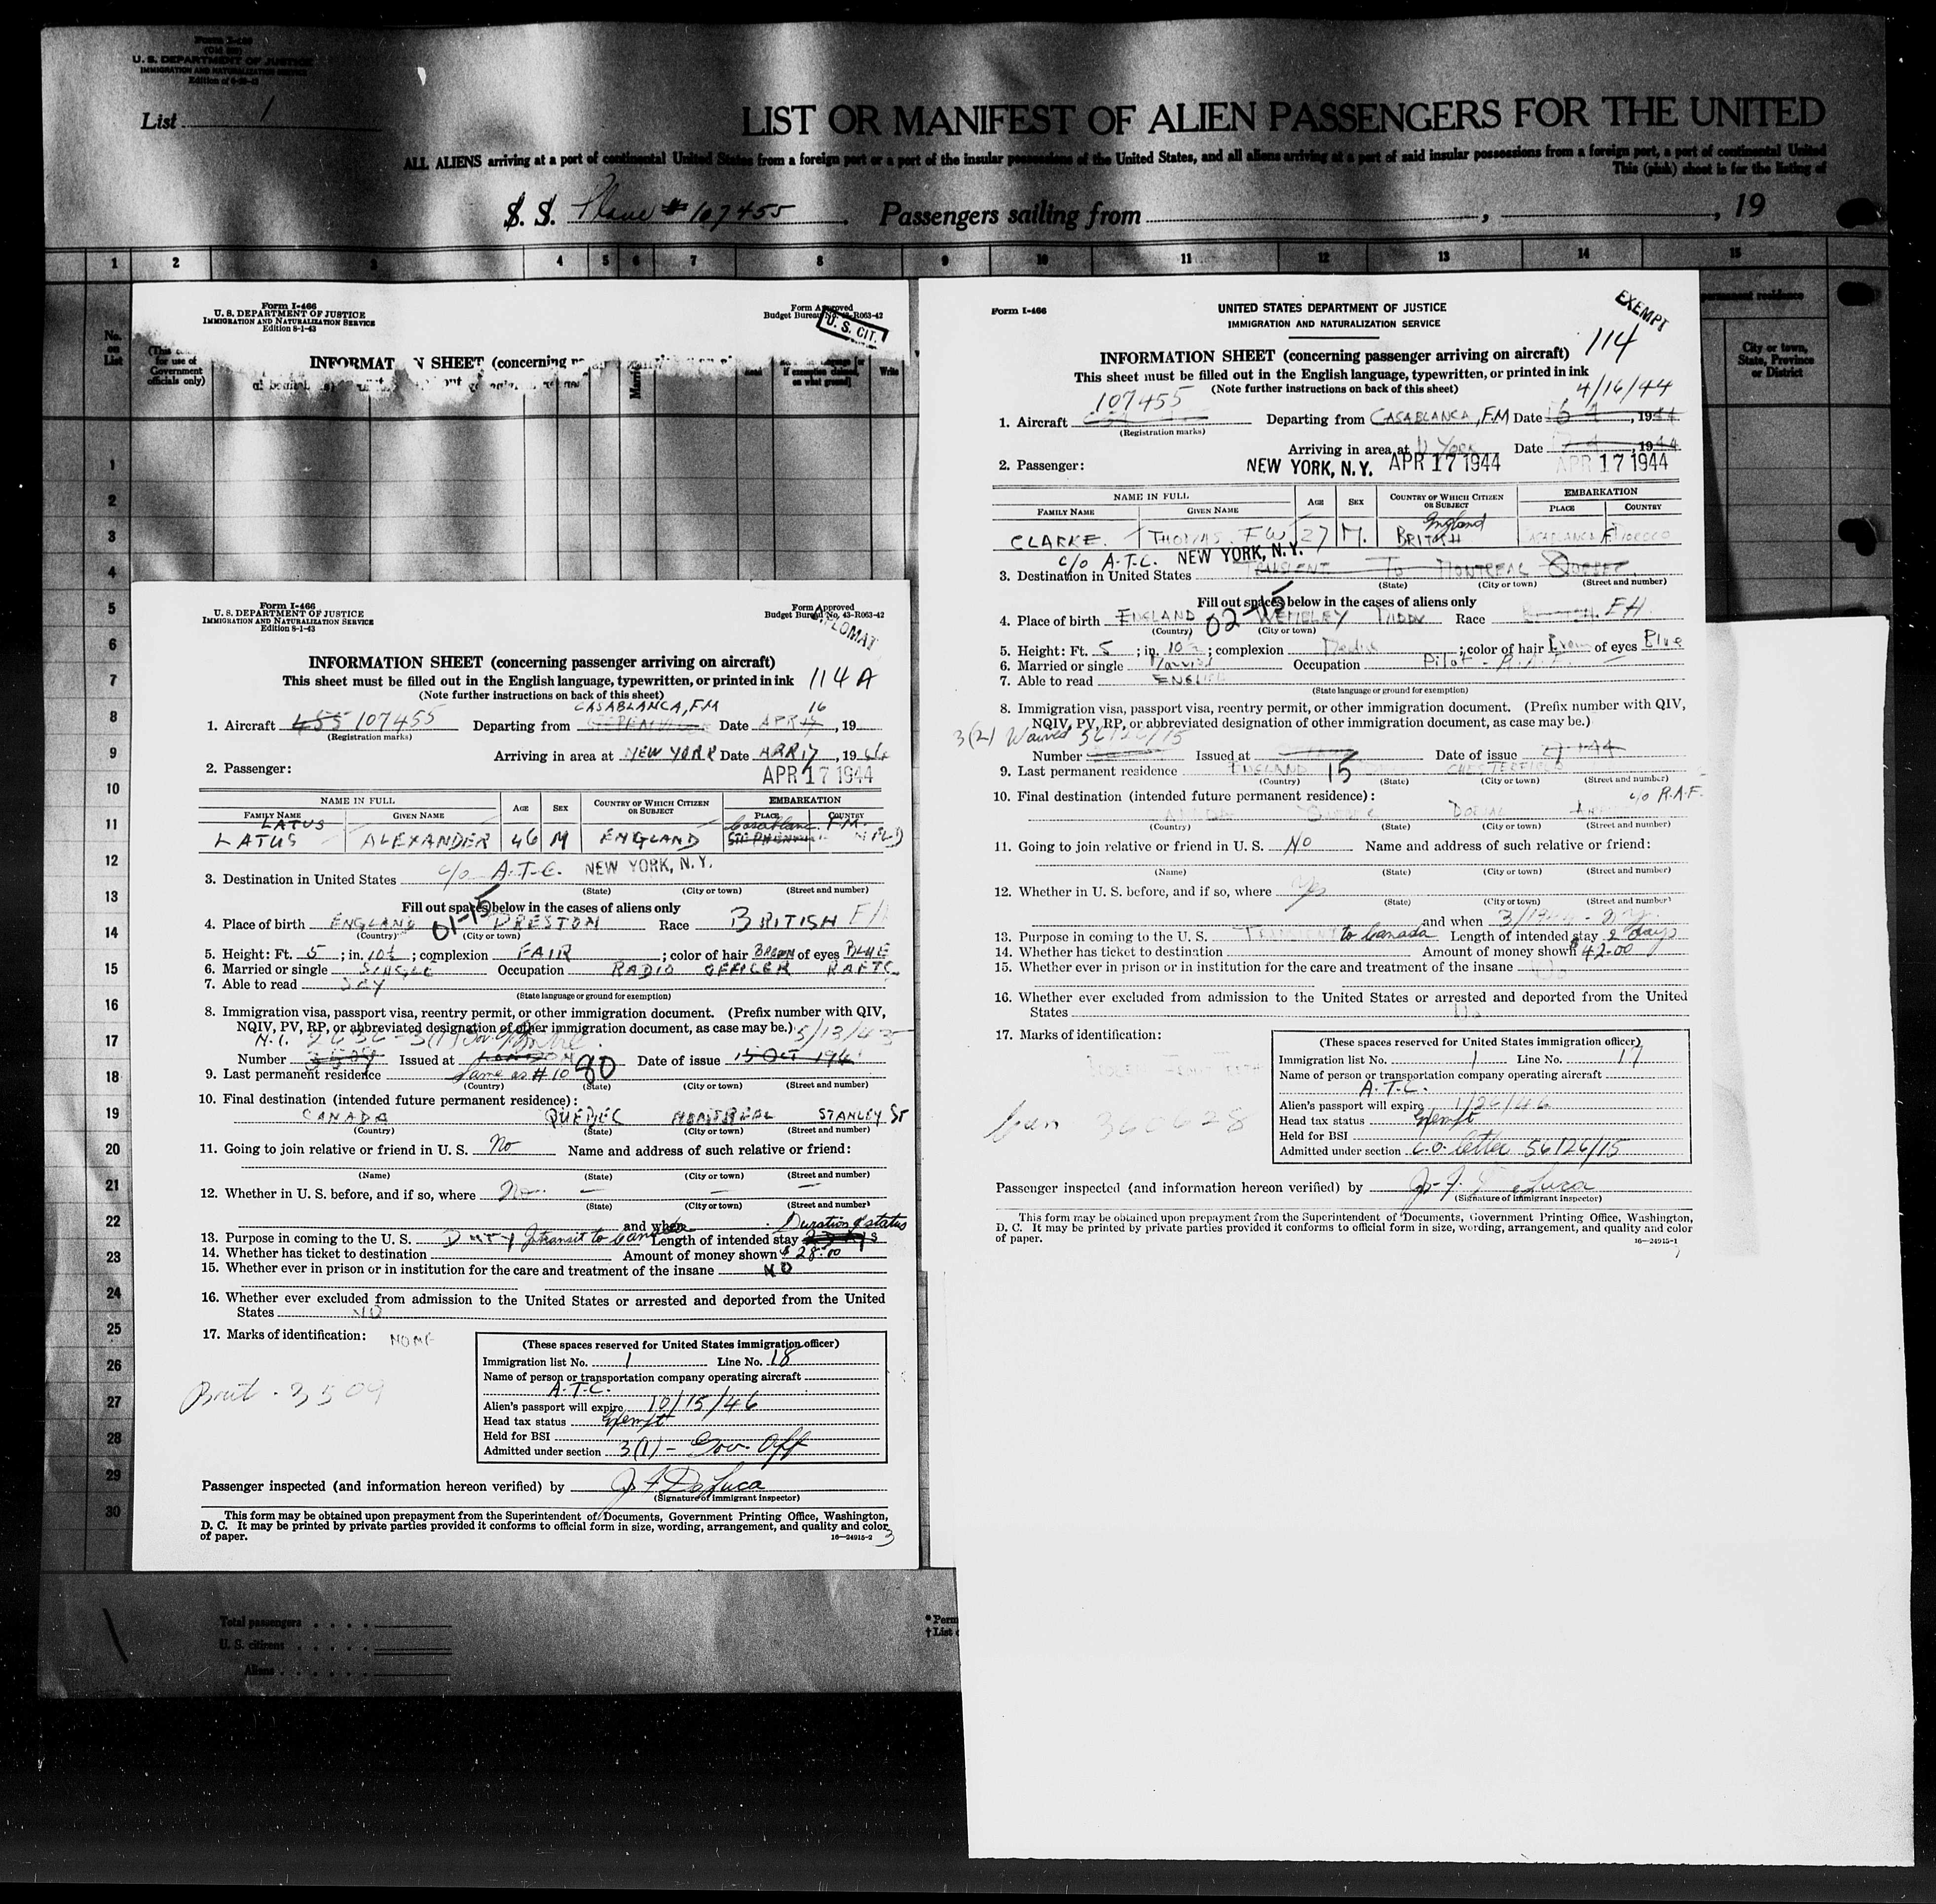 Form I-466
(Old 500)
U. S. DEPARTMENT OF JUSTICE
IMMIGRATION AND NATURALIZATION SERVICE
List 1
LIST OR MANIFEST OF ALIEN PASSENGERS FOR THE UNITED
ALL ALIENS arriving at a port of continental United States from a foreign port or a port of the insular possessions of the United States, and all aliens arriving at a port of said insular possessions from a foreign port, a port of continental United
This (pink) sheet is for the listing of
S. S. Plane # 107455 Passengers sailing from , , 19
1 2 3 4 5 6 7 8 9 10 11 12 13 14 15
No. on List
(This for use of Government officials only)
permanent residence
City or town, State, Province or District
Form I-466
U. S. DEPARTMENT OF JUSTICE
IMMIGRATION AND NATURALIZATION SERVICE
Edition 8-1-43
Form Approved
Budget Bureau No. 43-R063-42
U. S. CIT.
INFORMAT N SHEET (concerning
1
2
3
4
5
6
7
8
9
10
11
12
13
14
15
16
17
18
19
20
21
22
23
24
25
26
27
28
29
30
Form I-466
U. S. DEPARTMENT OF JUSTICE
IMMIGRATION AND NATURALIZATION SERVICE
Edition 8-1-43
Form Approved
Budget Bureau No. 43-R063-42
DIPLOMAT
INFORMATION SHEET (concerning passenger arriving on aircraft)
This sheet must be filled out in the English language, typewritten, or printed in ink 114 A
(Note further instructions on back of this sheet)
CASABLANCA, FM 16
1. Aircraft 455 107455 Departing from Date APR , 19
(Registration marks)
Arriving in area at NEW YORK Date APR 17, 1944
2. Passenger: APR 17 1944
NAME IN FULL AGE SEX COUNTRY OF WHICH CITIZEN OR SUBJECT EMBARKATION
FAMILY NAME GIVEN NAME PLACE COUNTRY
LATUS Casablanc F.M.
LATUS ALEXANDER 46 M ENGLAND
3. Destination in United States c/o A.T.C. NEW YORK, N.Y.
(State) (City or town) (Street and number)
Fill out spaces below in the cases of aliens only
01-15
4. Place of birth ENGLAND PRESTON Race BRITISH FH
(Country) (City or town)
5. Height: Ft. 5; in. 10½; complexion FAIR; color of hair BROWN of eyes BLUE
6. Married or single SINGLE Occupation RADIO OFFICER RAFTC
7. Able to read
(State language or ground for exemption)
8. Immigration visa, passport visa, reentry permit, or other immigration document. (Prefix number with QIV,
NQIV, PV, RP, or abbreviated designation of other immigration document, as case may be.) 5/13/43
Number 3509 Issued at LONDON Date of issue 15 OCT 194
9. Last permanent residence Same as # 10 80
(Country) (State) (City or town) (Street and number)
10. Final destination (intended future permanent residence):
CANADA QUEBEC MONTREAL STANLEY ST
(Country) (State) (City or town) (Street and number)
11. Going to join relative or friend in U. S. No Name and address of such relative or friend:
(Name) (State) (City or town) (Street and number)
12. Whether in U. S. before, and if so, where No
(State) (City or town) (Street and number)
and when Duration of status
13. Purpose in coming to the U. S. DUTY In transit to Canada Length of intended stay
14. Whether has ticket to destination Amount of money shown $28.00
15. Whether ever in prison or in institution for the care and treatment of the insane NO
16. Whether ever excluded from admission to the United States or arrested and deported from the United
States NO
17. Marks of identification: NONE
Brit. 3509
(These spaces reserved for United States immigration officer)
Immigration list No. 1 Line No. 18
Name of person or transportation company operating aircraft
A.T.C.
Alien's passport will expire 10/15/46
Head tax status Exempt
Held for BSI
Admitted under section 3(1) - Gov. Off
Passenger inspected (and information hereon verified) by J F DeLuca
(Signature of immigrant inspector)
This form may be obtained upon prepayment from the Superintendent of Documents, Government Printing Office, Washington,
D. C. It may be printed by private parties provided it conforms to official form in size, wording, arrangement, and quality and color
of paper. 16—24915-2 3
Total passengers
U. S. citizens
Aliens
* Perm
† List
Form I-466
UNITED STATES DEPARTMENT OF JUSTICE
IMMIGRATION AND NATURALIZATION SERVICE
EXEMPT
114
INFORMATION SHEET (concerning passenger arriving on aircraft)
This sheet must be filled out in the English language, typewritten, or printed in ink
(Note further instructions on back of this sheet)
107455 4/16/44
1. Aircraft Departing from CASABLANCA, F.M Date , 1944
(Registration marks)
Arriving in area at N York Date , 1944
2. Passenger: NEW YORK, N.Y. APR 17 1944 APR 17 1944
NAME IN FULL AGE SEX COUNTRY OF WHICH CITIZEN OR SUBJECT EMBARKATION
FAMILY NAME GIVEN NAME PLACE COUNTRY
England
CLARKE THOMAS. F W 27 M. BRITISH CASABLANCA F. MOROCCO
c/o A.T.C. NEW YORK, N.Y.
3. Destination in United States TRANSIENT TO MONTREAL QUEBEC
(State) (City or town) (Street and number)
Fill out spaces below in the cases of aliens only
02-15
4. Place of birth ENGLAND WEMBLEY MIDDX Race FH.
(Country) (City or town)
5. Height: Ft. 5; in. 10½; complexion; color of hair Brown of eyes Blue
6. Married or single Married Occupation Pilot - R.A.F.
7. Able to read ENGLISH
(State language or ground for exemption)
8. Immigration visa, passport visa, reentry permit, or other immigration document. (Prefix number with QIV,
NQIV, PV, RP, or abbreviated designation of other immigration document, as case may be.)
3(2) Waived 56126/15
Number Issued at Date of issue
9. Last permanent residence ENGLAND 15 CHESTERFIELD
(Country) (State) (City or town) (Street and number)
10. Final destination (intended future permanent residence): c/o R.A.F.
DORVAL
(Country) (State) (City or town) (Street and number)
11. Going to join relative or friend in U. S. No Name and address of such relative or friend:
(Name) (State) (City or town) (Street and number)
12. Whether in U. S. before, and if so, where Yes
(State) (City or town) (Street and number)
and when 3/1944
13. Purpose in coming to the U. S. TRANSIENT to Canada Length of intended stay 2 days
14. Whether has ticket to destination Amount of money shown $42.00
15. Whether ever in prison or in institution for the care and treatment of the insane No
16. Whether ever excluded from admission to the United States or arrested and deported from the United
States No
17. Marks of identification:
360628
(These spaces reserved for United States immigration officer)
Immigration list No. 1 Line No. 17
Name of person or transportation company operating aircraft
A.T.C.
Alien's passport will expire 1/26/46
Head tax status Exempt
Held for BSI
Admitted under section C.O. letter 56126/15
Passenger inspected (and information hereon verified) by J. F. DeLuca
(Signature of immigrant inspector)
This form may be obtained upon prepayment from the Superintendent of Documents, Government Printing Office, Washington,
D. C. It may be printed by private parties provided it conforms to official form in size, wording, arrangement, and quality and color
of paper. 16—24915-1